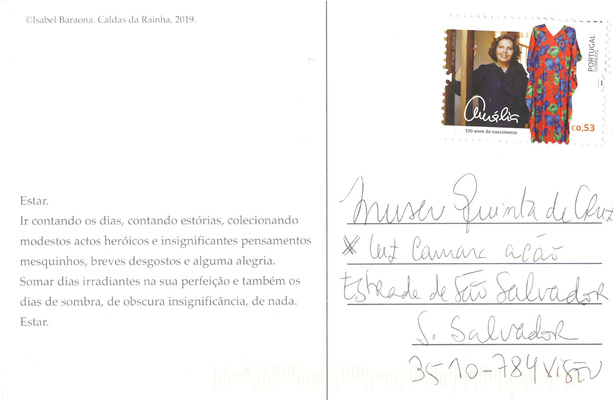 ©Isabel Baraona. Caldas da Rainha, 2019.
Estar.
Ir contando os dias, contando estórias, colecionando
modestos actos heróicos e insignificantes pensamentos
mesquinhos, breves desgostos e alguma alegria.
Somar dias irradiantes na sua perfeição e também os
dias de sombra, de obscura insignificância, de nada.
Estar.
PORTUGAL
CORREIOS
Amália
100 anos do nascimento
€0,53
Museu Quinta da Cruz
* luz Camara ação
Estrada de São Salvador
S. Salvador
3510-784 VISEU